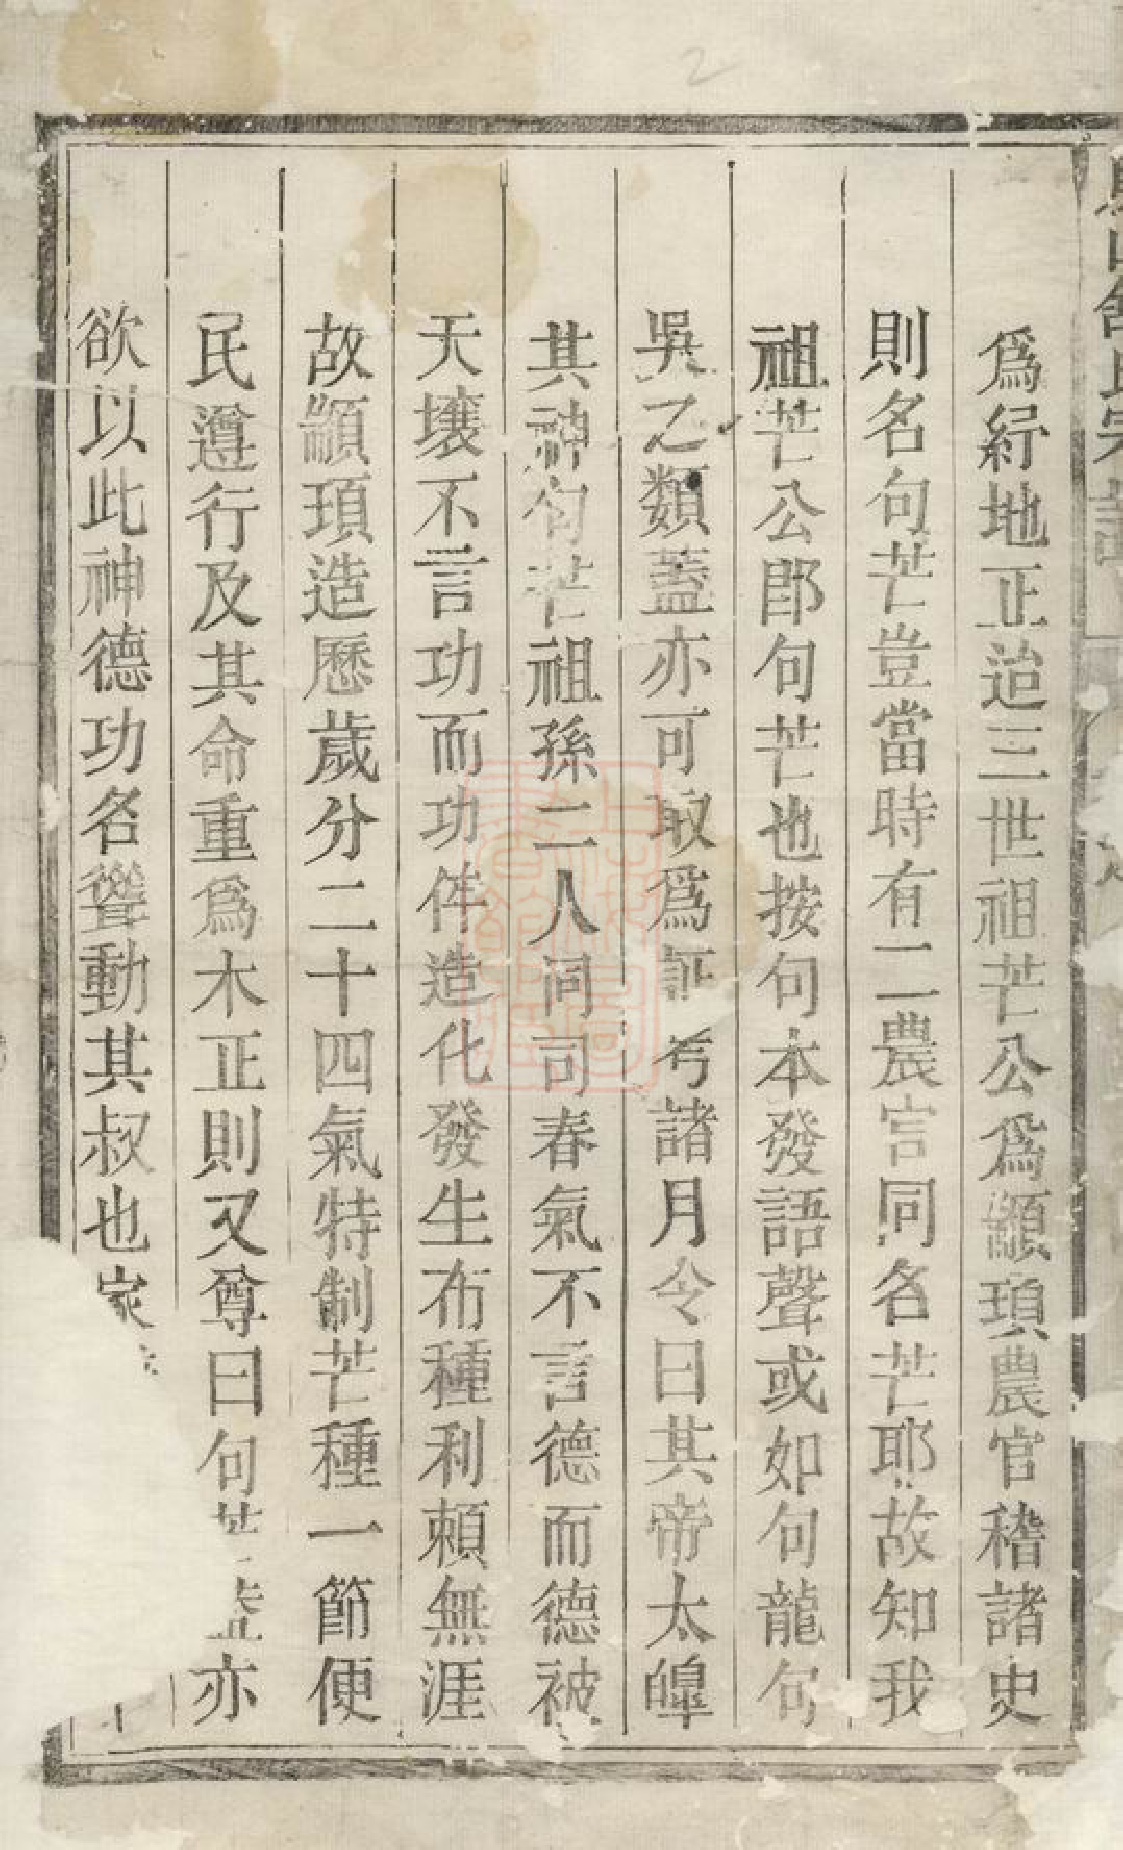 爲紆地正迨三世祖芒公爲顓頊農官稽諸史
則名句芒豈當時有二農官同名芒耶故知我
祖芒公卽句芒也按句本發語聲或如句龍句
吳之類蓋亦可取爲証考諸月令曰其帝太皥
其神句芒祖孫二人同司春氣不言德而德被
天壤不言功而功侔造化發生布種利賴無涯
故顓頊造曆歲分二十四氣特制芒種一節便
民遵行及其命重爲木正則又尊曰句芒蓋亦
欲以此神德功名聳動其叔也家